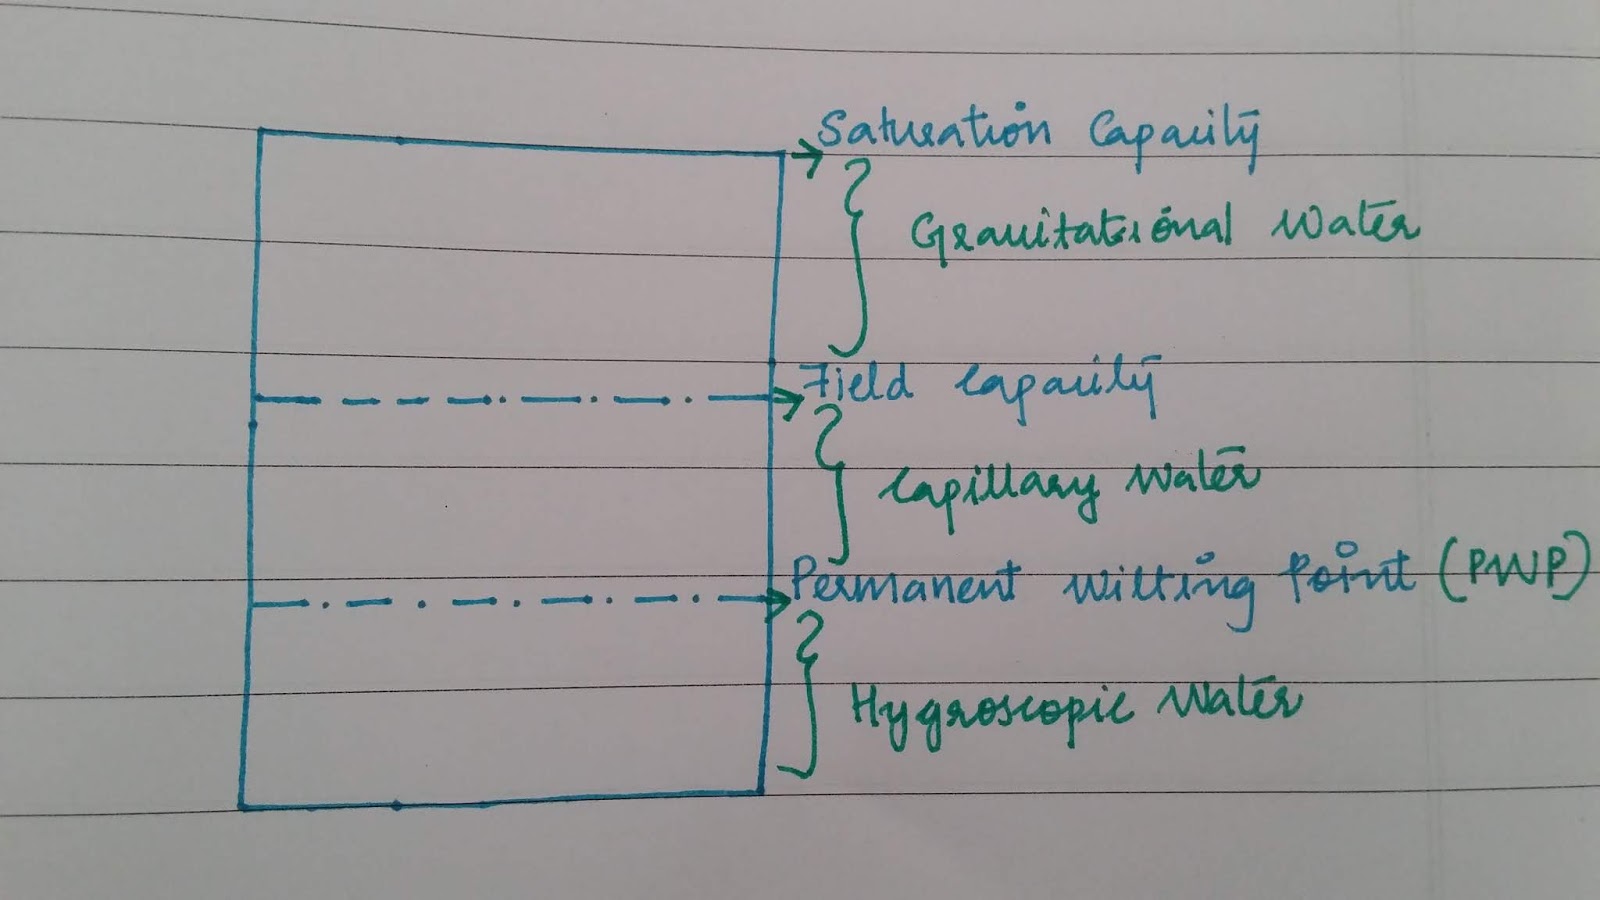 Saturation Capacity
Gravitational Water
Field Capacity
Capillary Water
Permanent Wilting Point (PWP)
Hygroscopic Water